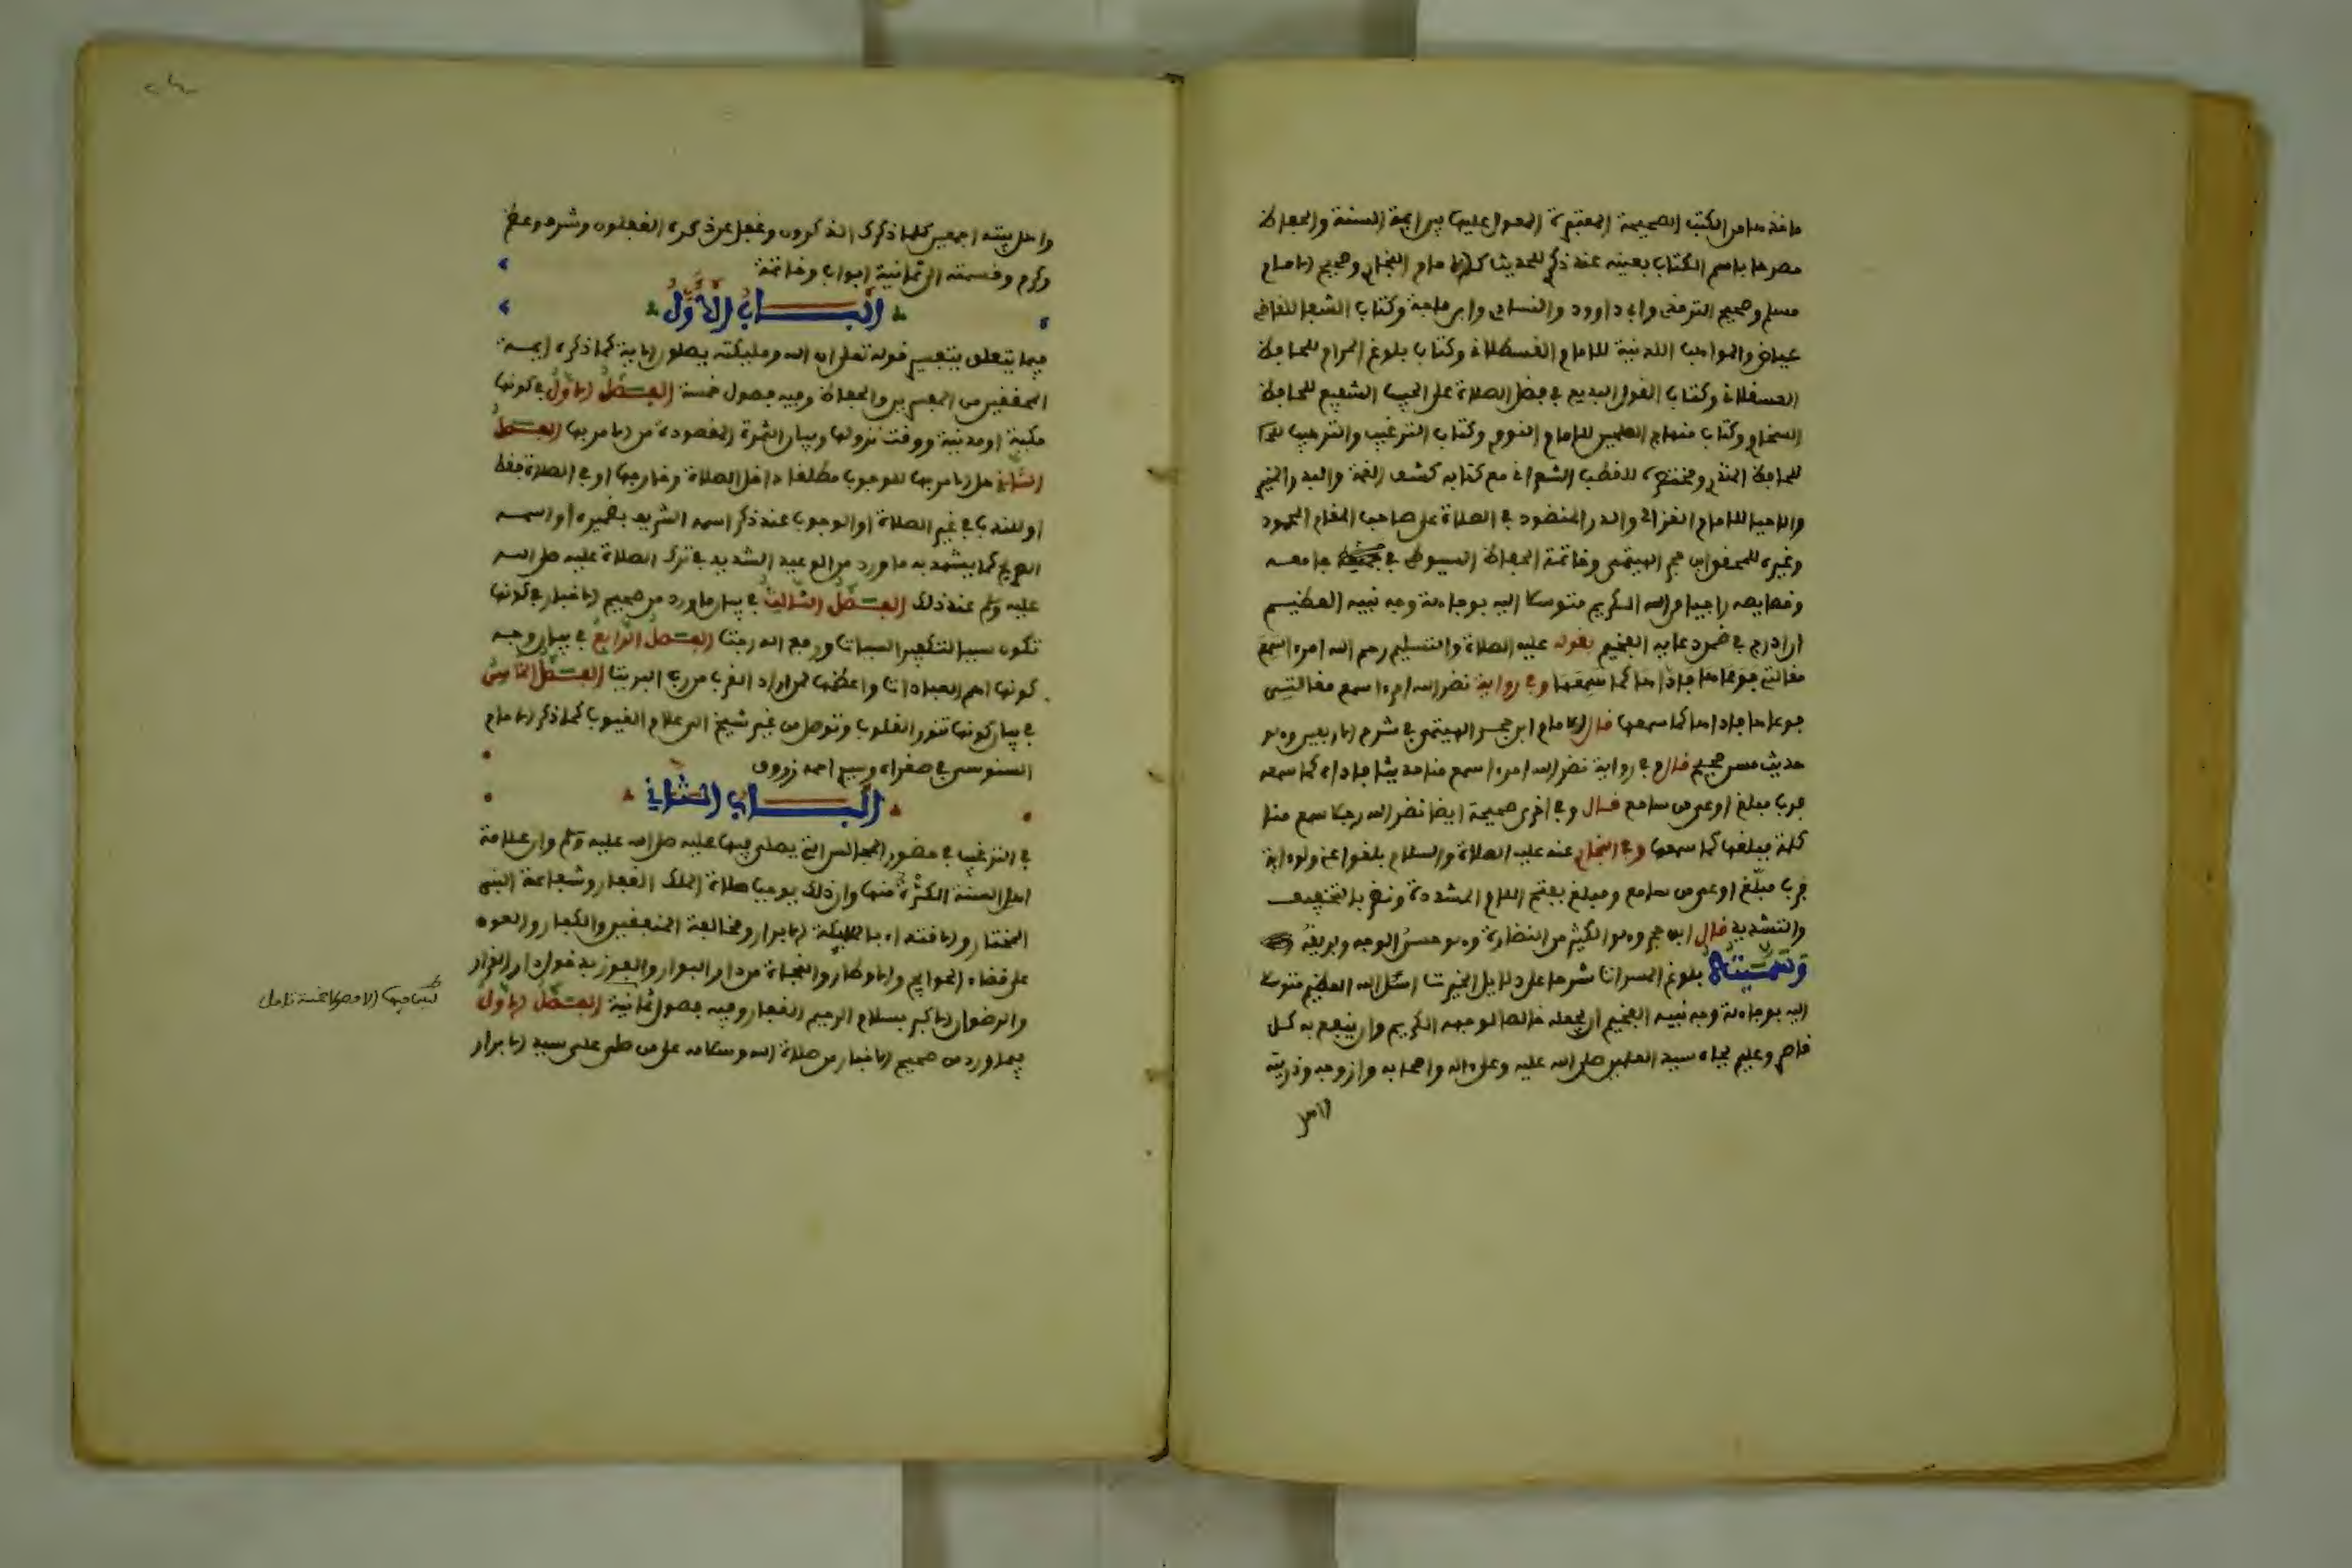 ماخذها من الكتب الصحيحة المعتبرة المعول عليها بين ايمة السنة والحفاظ
مصرحا باسم الكتاب بعينه عند ذكر الحديث كالامام البخاري وصحيح الامام
مسلم وصحيح الترمذي وابي داوود والنسائي وابن ماجة وكتاب الشفا للقاضي
عياض والمواهب اللدنية للامام القسطلاني وكتاب بلوغ المرام للحافظ
العسقلاني وكتاب القول البديع في فضل الصلاة على الحبيب الشفيع للحافظ
السخاوي وكتاب منهاج للامام النووي وكتاب الترغيب والترهيب
للحافظ المنذري ومختصره للقطب الشعراني مع كتابه كشف الغمة والبدر المنير
والاحيا للامام الغزالي والدر المنضود في الصلاة على صاحب المقام المحمود
وغيره للمحقق ابن حجر الهيتمي وخاتمة الحفاظ السيوطي في جامعه
وخصايصه راجيا من الله الكريم متوسلا اليه بوجاهة وجه نبيه العظيم
ان ادرج في دعايه الفخيم بقوله عليه الصلاة والتسليم رحم الله امرءا سمع
مقالتي فوعاها فاداها كما سمعها وفي رواية نضر الله امرءا سمع مقالتي
فوعاها فاداها كما سمعها قال الامام ابن حجر الهيتمي في شرح الاربعين وهو
حديث حسن صحيح قال وفي رواية نضر الله امرءا سمع منا حديثا فاداه كما سمعه
فرب مبلغ اوعى من سامع قال وفي اخرى صحيحة ايضا نضر الله رجلا سمع منا
كلمة فبلغها كما سمعها وفي البخاري عنه عليه الصلاة والسلام بلغوا عني ولو ءاية
فرب مبلّغ اوعى من سامع ومبلغ بفتح اللام المشددة ونضر بالتخفيف
والتشديد قال ابن حجر وهو الكثير من النضارة وهو حسن الوجه وبريقه
وسميته بلوغ المسرات شرحا على دلايل الخيرات اسئل الله العظيم متوسلا
اليه بوجاهة وجه نبيه الفخيم ان يجعله خالصا لوجهه الكريم وان ينفع به كل
قاصر وعليم بجاه سيد العلمين صلى الله عليه وعلى ءاله واصحابه وازوجه وذريته
واهل
واهل بيته اجمعين كلما ذكرك الذكرون وغفل عن ذكره الغفلون وشرف وعظم
وكرم وقسمته الى ثمانية ابواب وخاتمة
الباب الاول
فيما يتعلق بتفسير قوله تعلى ان الله ومليكته يصلون الاية كما ذكره ايمة
المحققين من المفسرين والحفاظ وفيه فصول خمسة الفصل الاول في كونها
مكية او مدنية ووقت نزولها وبيان الثمرة المقصودة من الامر بها الفصل
الثاني هل الامر بها للوجوب مطلقا داخل الصلاة وخارجها او في الصلاة فقط
او للندب في غير الصلاة او الوجوب عند ذكر اسمه الشريف بضميره او اسمه
الصريح كما يشهد به ما ورد من الوعيد الشديد في ترك الصلاة عليه صلى الله
عليه وسلم عند ذلك الفصل الثالث في بيان ما ورد من صحيح الاخبار في كونها
تكون سببا لتكفير السيات ورفع الدرجت الفصل الرابع في بيان وجه
كونها اهم العبادات واعظمها لمن اراد القرب من رب البريت الفصل الخامس
في بيان كونها تنور القلوب وتوصل من غير شيخ الى علام الغيوب كما ذكر الامام
السنوسي في صغراه وسيدي احمد زروق
الباب الثاني
في الترغيب في حضور المجالس التي يصلى فيها عليه صلى الله عليه وسلم وان علامة
اهل السنة الكثرة منها وان ذلك يوجب صلاة الملك الغفار وشفاعة النبي
المختار والاقتداء بالمليكة الابرار ومخالفة المنفقين والكفار والعون
على قضاء الحوايج والاوطار والنجاة من دار البوار والفوز بدخول دار القرار
والرضوان الاكبر بسلام الرحيم الغفار وفيه فصول ثمانية الفصل الاول
فيما ورد من صحيح الاخبار من صلاة الله وسلامه على من صلى على سيد الابرار
ليس فيها الا فصولا خمسة تامل